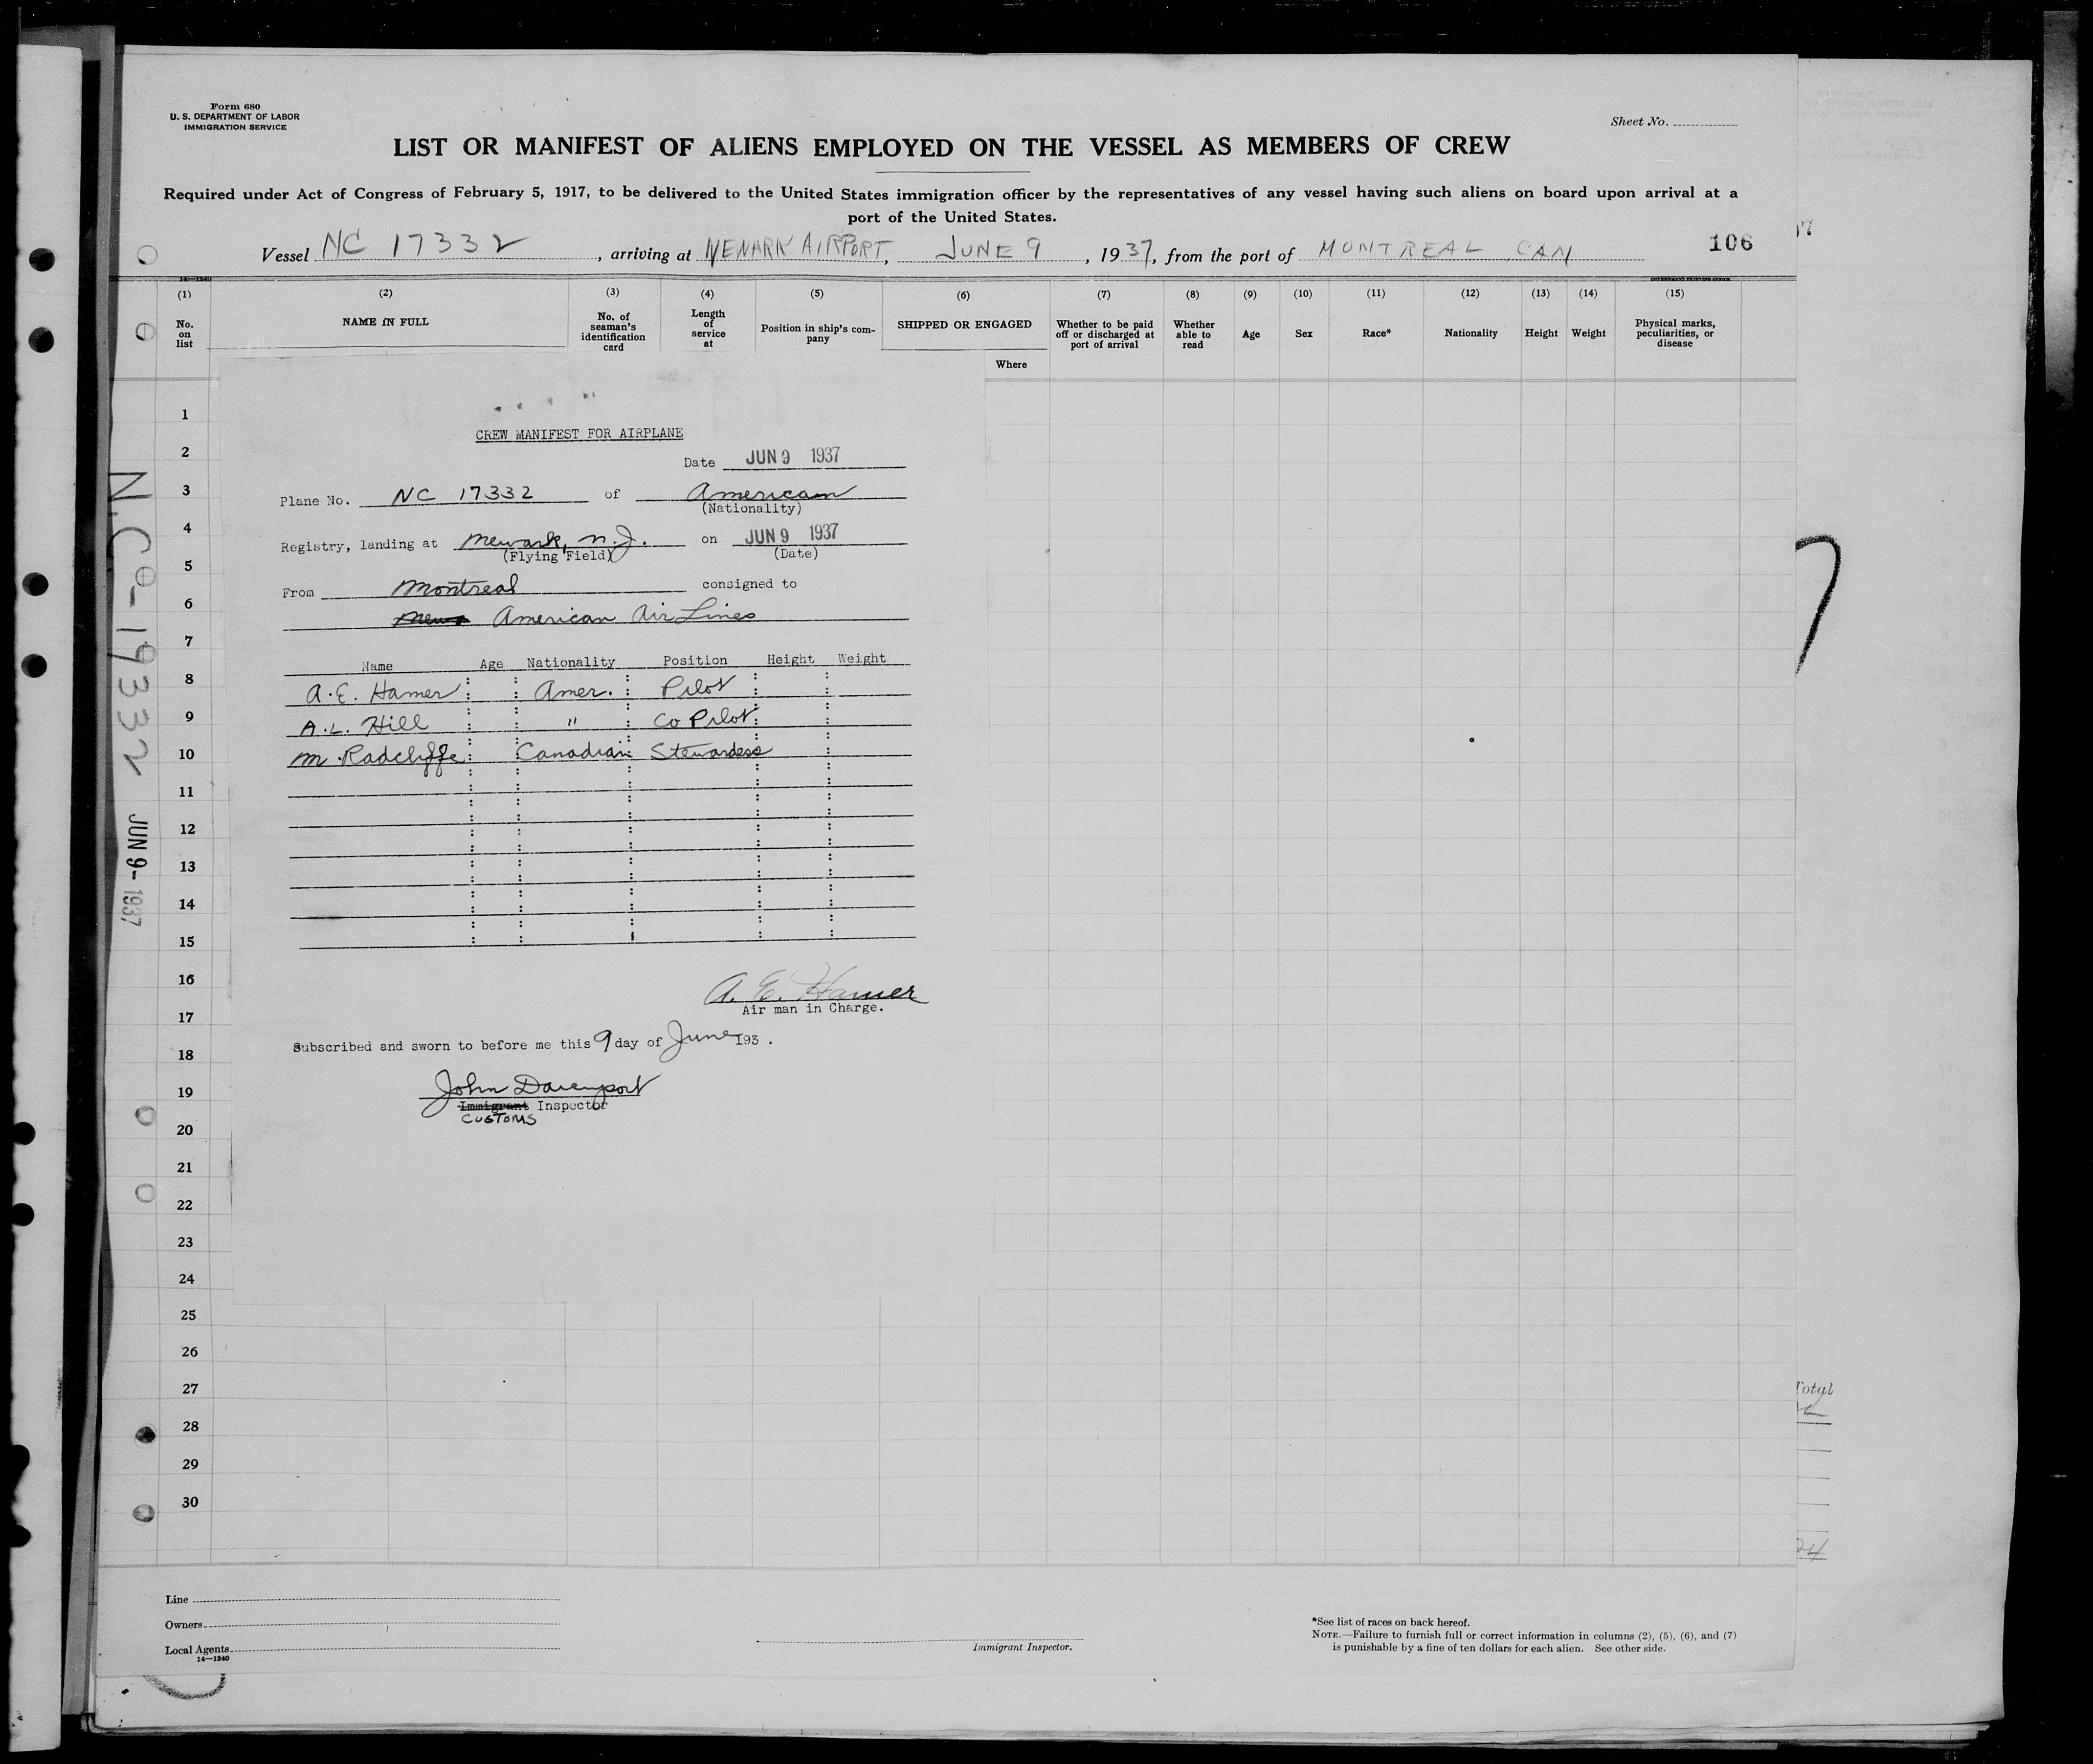 Form 680
U. S. DEPARTMENT OF LABOR
IMMIGRATION SERVICE
Sheet No.
LIST OR MANIFEST OF ALIENS EMPLOYED ON THE VESSEL AS MEMBERS OF CREW
Required under Act of Congress of February 5, 1917, to be delivered to the United States immigration officer by the representatives of any vessel having such aliens on board upon arrival at a
port of the United States.
Vessel NC 17332, arriving at NEWARK AIRPORT, JUNE 9, 1937, from the port of MONTREAL CAN 106
14—1240 GOVERNMENT PRINTING OFFICE
(1) (2) (3) (4) (5) (6) (7) (8) (9) (10) (11) (12) (13) (14) (15)
No. on list
NAME IN FULL
No. of seaman's identification card
Length of service at
Position in ship's company
SHIPPED OR ENGAGED
Where
Whether to be paid off or discharged at port of arrival
Whether able to read
Age
Sex
Race*
Nationality
Height
Weight
Physical marks, peculiarities, or disease
1
2
3
4
5
6
7
8
9
10
11
12
13
14
15
16
17
18
19
20
21
22
23
24
25
26
27
28
29
30
CREW MANIFEST FOR AIRPLANE
Date JUN 9 1937
Plane No. NC 17332 of American
(Nationality)
Registry, landing at Newark, N.J. on JUN 9 1937
(Flying Field) (Date)
From Montreal consigned to
American Air Lines
Name Age Nationality Position Height Weight
A. E. Hamer : : Amer. : Pilot : :
A. L. Hill : : " : Co Pilot : :
M. Radcliffe : : Canadian : Stewardess :
A. E. Hamer
Air man in Charge.
Subscribed and sworn to before me this 9 day of June 193 .
John Davenport
Immigrant Inspector
CUSTOMS
JUN 9 - 1937
Line
Owners
Local Agents
14—1240
Immigrant Inspector.
*See list of races on back hereof.
NOTE.—Failure to furnish full or correct information in columns (2), (5), (6), and (7)
is punishable by a fine of ten dollars for each alien. See other side.
Total
24